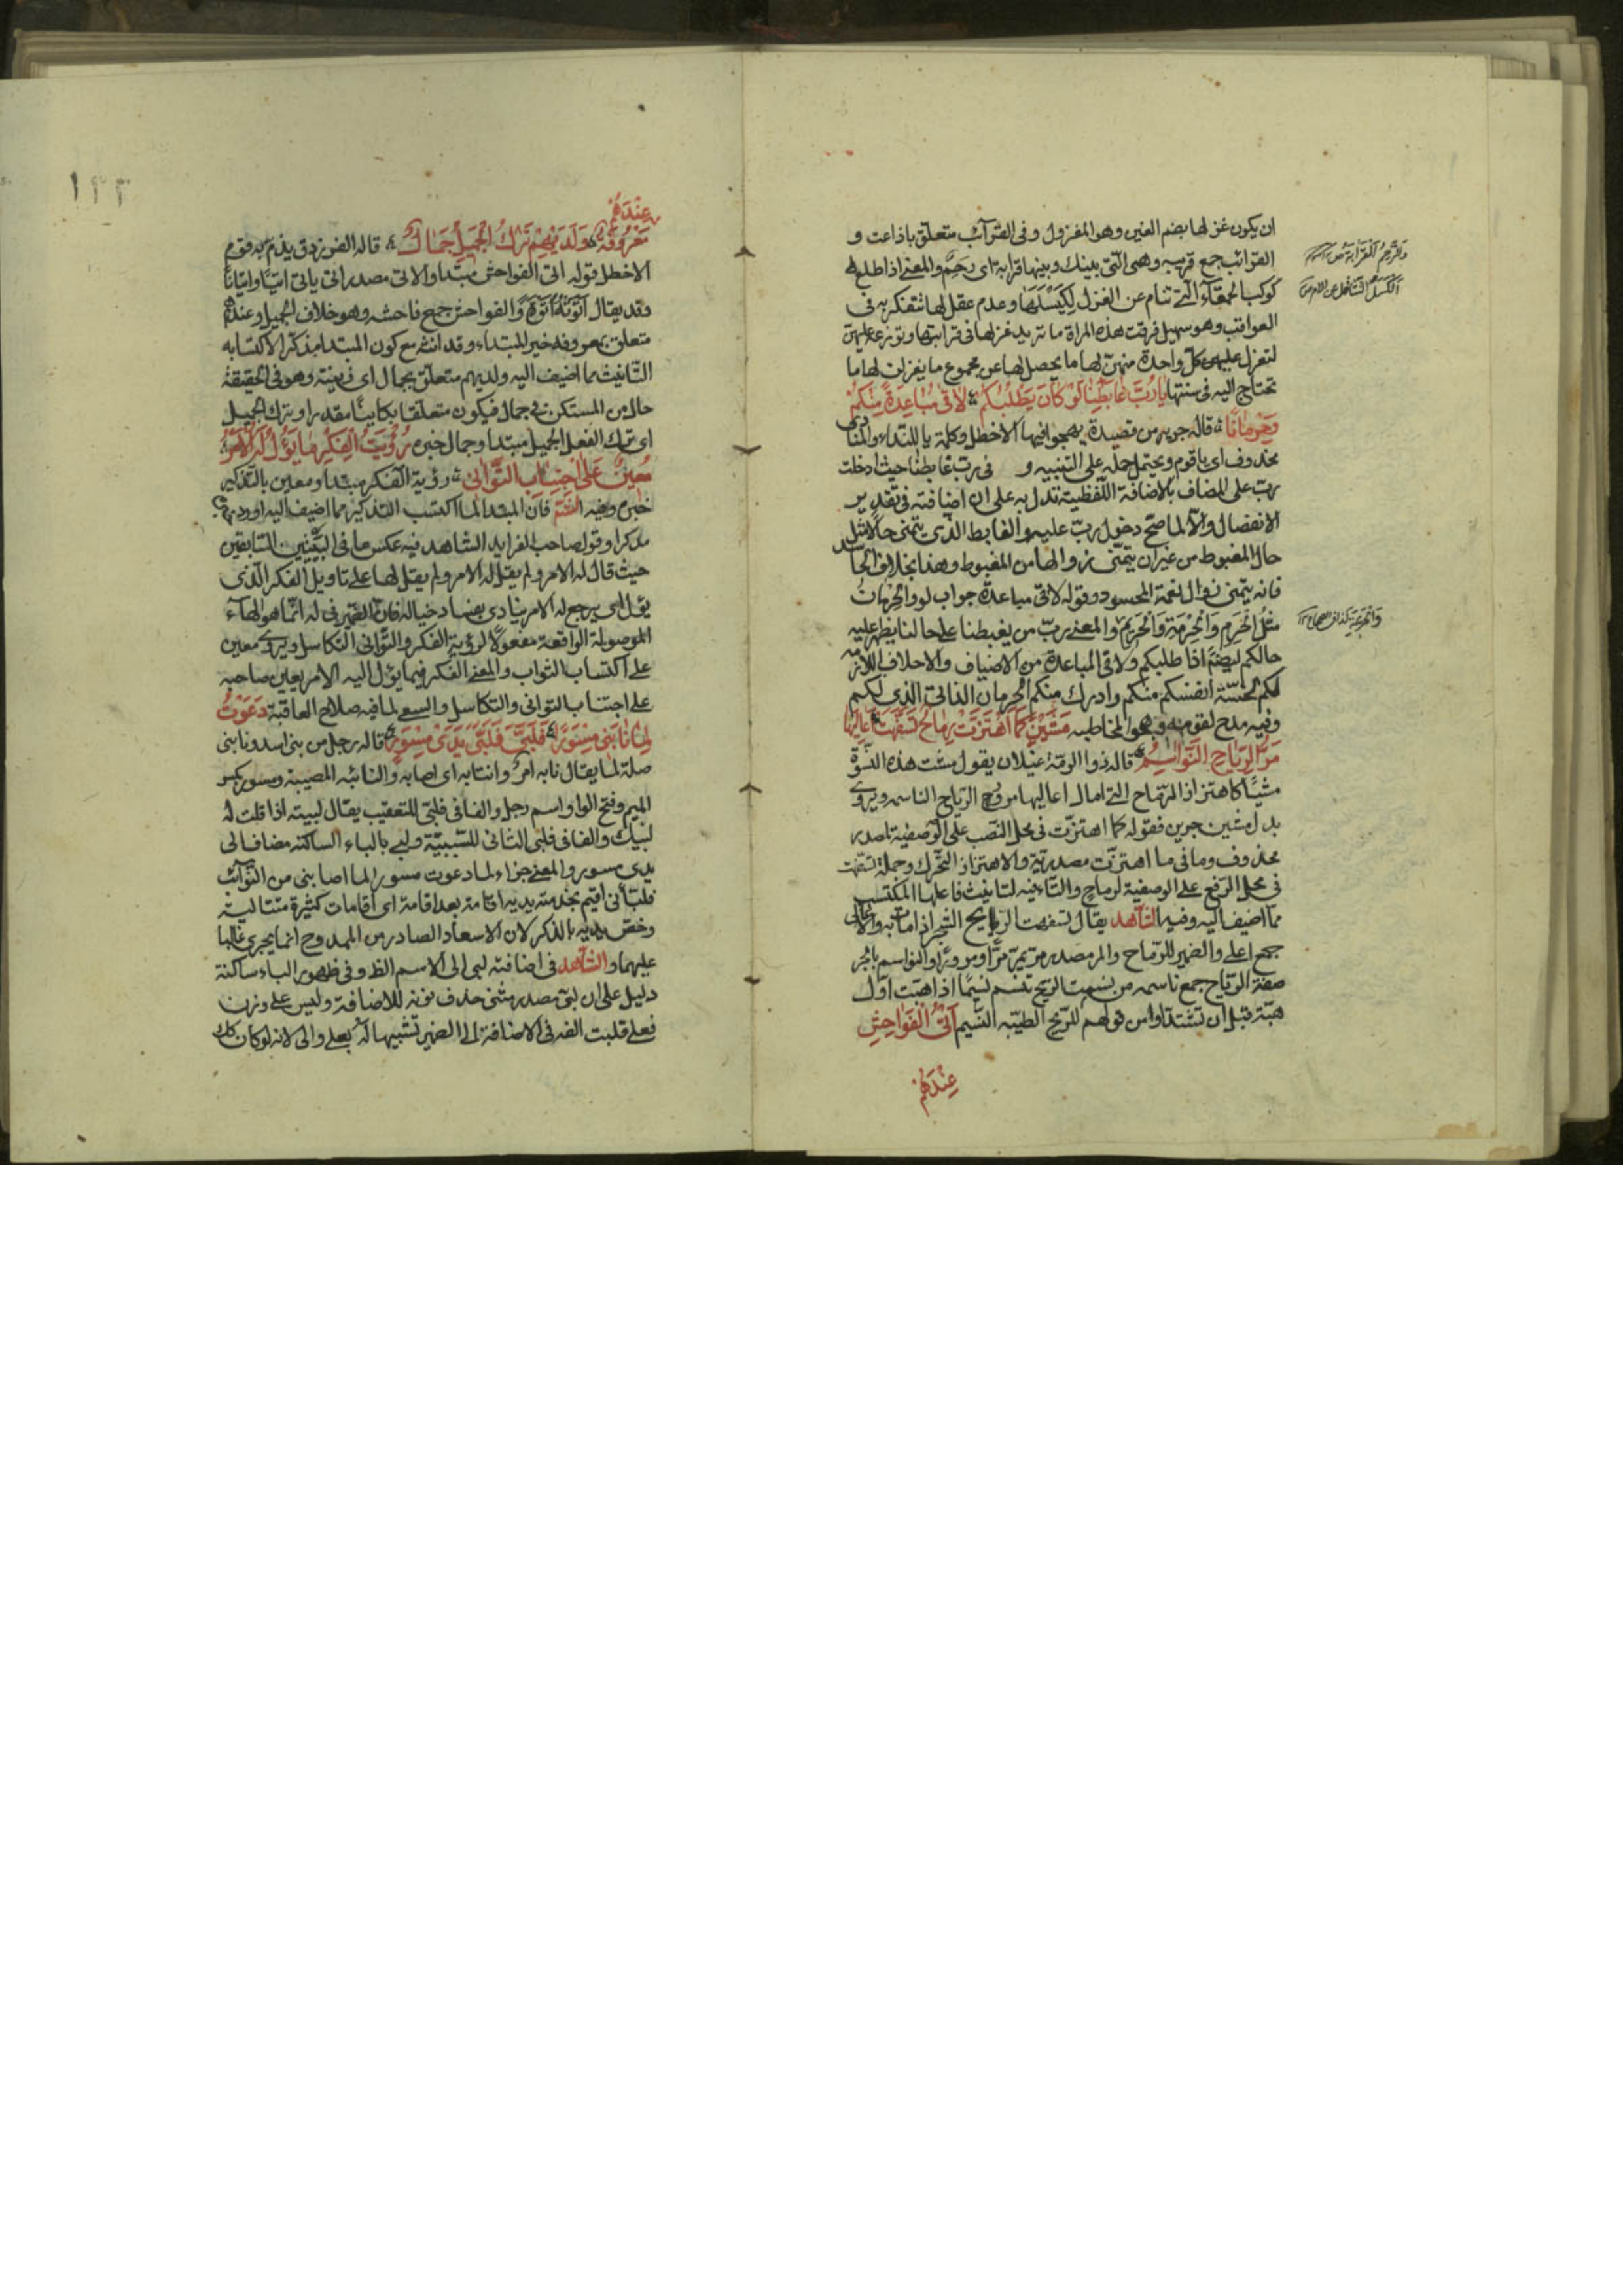 ان يكون غزلها بضم الغين وهو المغزول وفى القرآئب متعلق باذاعت و
القرائب جمع قريبه وهى التى بينك وبينها قرابة اى رحم والمعنى اذا طلع
كوكب الحمقآء التى تنام عن الغزل لكسلها وعدم عقل لها تتفكر به فى
العواقب وهو سهيل فرقت هذه المراة ما تريد غزلها فى قرابتها وتوزعه عليهن
لتغزل عليهن كل واحدة منهن لها ما يحصل لها من مجموع ما يغزلن لها ما
تحتاج اليه فى سنتها يا رُبَّ غابِطِنا لَوْ كانَ يَطْلُبُكُمْ لاقى مُباعَدَةً مِنْكُمْ
وَحِرْمانًا قاله جرير من قصيدة يهجو فيها الاخطل وكلمة يا للنداء والمنادى
محذوف اى يا قوم ويحتمل حمله على التنبيه و فى رب غابطنا حيث ادخلت
ربّ على المضاف بالاضافة اللّفظيّة تدل به على ان اضافته فى تقدير
الانفصال والا لما صحّ دخول ربّ عليه والغابط الذى يتمنى حالا مثل
حال المغبوط من غير ان يتمنى زوالها من المغبوط وهذا بخلاف الحاسد
فانه يتمنى زوال نعمة المحسود وقوله لاقى مباعدة جواب لو والحرمان
مثل الحَرِم وَالحِرْمَة وَالحَريم والمعنى ربّ من يغبطنا على حالنا يظهر عليه
حالكم ليضمّ اذا طلبكم ولاقى المباعدة من الاضياف والاحلاف اللازمة
لكم لخسّة انفسكم منكم وادرك منكم الحرمان الذاتى الذى لكم
وفيه مدح لقومه وهجو المخاطبه مَشَيْنَ كَمَا اهْتَزَّتْ رِماحٌ تَسَفَّهَتْ اَعالِيَها
مَرُّ الرِّياحِ النَّواسِمُ قاله ذو الرمّة غيلان يقول مشت هذه النسوة
مشيًا كاهتزاز الرماح التى امال اعاليها مرور الرياح الناسمه ويروى
بدل مشين جرين فقوله كما اهتزت فى محل النصب على الوصفية لمصدر
محذوف وما فى ما اهتزت مصدرية والاهتزاز التحرك وجملة تسفهت
فى محل الرفع على الوصفية لرماح والتاء فيه لتانيث فاعلها المكتسب
ممّا اضيف اليه وفيه الشاهد يقال تسفهت الرياح الشجر اذا مالت به والاعالى
جمع اعلى والضمير للرماح والمر مصدر مر يمرّ مرًا ومرورًا والنواسم بالجر
صفة الرياح جمع ناسمه من نسمت الريح تنسم نسيمًا اذا هبت اوّل
هبّة قبل ان تشتد او من قولهم للريح الطيّبه النسيم اَتْىُ الْفَواحِشِ
عِنْدَهُمْ
عِنْدَهُمْ
مَعْرُوفَةٌ وَلَدَيْهِمْ تَرْكُ الْجَميلِ جَمالُ قاله الفرزدق يذم به قوم
الاخطل قوله اتى الفواحش مبتدا والاتى مصدر اتى ياتى اتيًا واتيانًا
وقد يقال اتوته اتوة والفواحش جمع فاحشه وهو خلاف الجميل وعندهم
متعلق بمعروفه خبر للمبتداء وقد انث مع كون المبتدا مذكّرا لاكتسابه
التّانيث مما اضيف اليه ولديهم متعلق بجمال اى زينة وهو فى الحقيقة
حال من المستكن فى جمال فيكون متعلقا بكاينًا مقدرا وترك الجميل
اى ترك الفعل الجميل مبتدا وجمال خبره رُؤْيَةُ الْفِكْرِ ما يَؤُلُ لَهُ الْاَمْرُ
مُعينٌ عَلَى اجْتِنابِ التَّوانى رؤية الفكر مبتدا ومعين بالتذكير
خبره وفيه الشاهد فان المبتدا لما اكتسب التذكير مما اضيف اليه اورد خبره
مذكرا وقول صاحب الفرايد الشاهد فيه عكس ما فى البيتين السابقين
حيث قال له الامر ولم يقل له الامر ولم يقل لها على تاويل الفكر الّذى
يؤل اى يرجع له الامر ينادى بفساد خياله فان الضمير فى له انّما هو الهآء
الموصولة الواقعة مفعولًا لرؤية الفكر والتوانى التكاسل ويروى معين
على اكتساب الثواب والمعنى الفكر فيما يؤل اليه الامر يعين صاحبه
على اجتناب التوانى والتكاسل والسعى لما فيه صلاح العاقبة دَعَوْتُ
لِما نابَنى مِسْوَرًا فَلَبّى فَلَبَّىْ يَدَىْ مِسْوَرِ قاله رجل من بنى اسد ونابنى
صلة لما يقال نابه امر وانتابه اى اصابه والنائبه المصيبة ومسور بكسر
الميم وفتح الواو اسم رجل والفا فى فلبى للتعقيب يقال لبيته اذا قلت له
لبيك والفا فى فلبى الثانى للسّببيّة ولبى بالباء الساكنه مضاف الى
يدى مسور والمعنى جزاء لما دعوت مسورا لما اصابنى من النّوآئب
فلبانى اقيم بخدمته يديه اقامة بعد اقامة اى اقامات كثيرة متتالية
وخصّ يديه بالذكر لان الاسعاد الصادر من الممدوح انما يجرى غالبا
عليهما والشاهد فى اضافته لبى الى الاسم الظ وفى ظهور الباء ساكنة
دليل على ان لبى مصدر مثنى حذف نونه للاضافة وليس على وزن
فعلى قلبت الفه فى الاضافة الى الضمير تشبيها له بعلى والى لانه لو كان كك